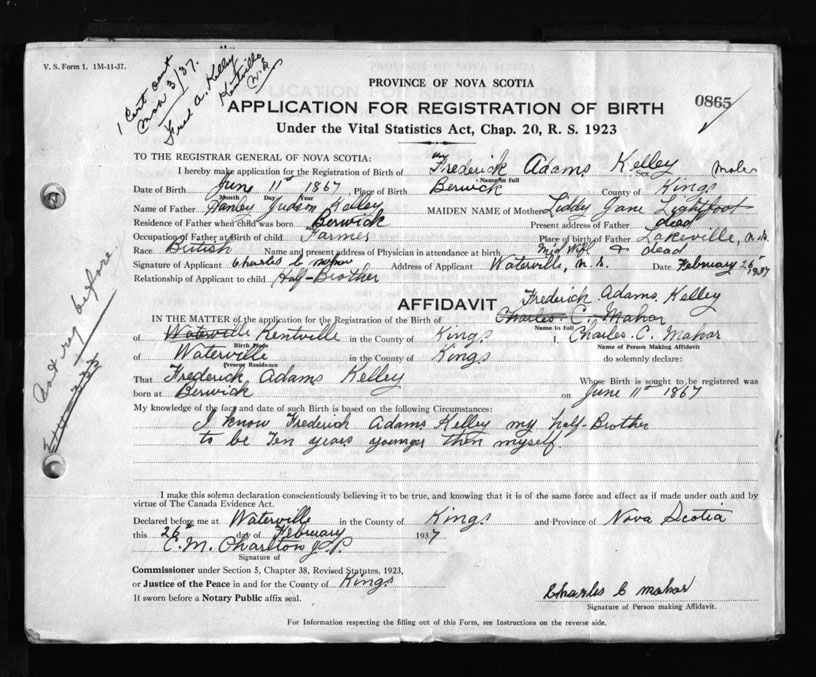 V. S. Form 1. 1M-11-37.
1 Cert sent
Mar 3/37.
Fred A. Kelley
Kentville
N.S.
PROVINCE OF NOVA SCOTIA
APPLICATION FOR REGISTRATION OF BIRTH
0865
Under the Vital Statistics Act, Chap. 20, R. S. 1923
TO THE REGISTRAR GENERAL OF NOVA SCOTIA:
I hereby make application for the Registration of Birth of Frederick Adams Kelley Sex Male
Name in full
Date of Birth June 11th 1867, Place of Birth Berwick County of Kings
Month Day Year
Name of Father Stanley Judson Kelley MAIDEN NAME of Mother Liddy Jane Lightfoot
Residence of Father when child was born Berwick Present address of Father dead
Occupation of Father at Birth of child Farmer Place of birth of Father Lakeville, N.S.
Race British Name and present address of Physician in attendance at birth Mid Wife & dead
Signature of Applicant Charles C Mahar Address of Applicant Waterville, N.S. Date February 26th 1937
Relationship of Applicant to child Half-Brother
AFFIDAVIT
Frederick Adams Kelley
IN THE MATTER of the application for the Registration of Birth of Charles C. Mahar
Name in full
of Waterville Kentville in the County of Kings I, Charles C. Mahar
Birth Place Name of Person Making Affidavit
of Waterville in the County of Kings do solemnly declare:
Present Residence
That Frederick Adams Kelley Whose Birth is sought to be registered was
born at Berwick on June 11th 1867
My knowledge of the fact and date of such Birth is based on the following Circumstances:
I know Frederick Adams Kelley my half-Brother
to be Ten years younger then myself.
I make this solemn declaration conscientiously believing it to be true, and knowing that it is of the same force and effect as if made under oath and by
virtue of The Canada Evidence Act.
Declared before me at Waterville in the County of Kings and Province of Nova Scotia
this 26th day of February 1937
C. M. Charlton J.P.
Signature of
Commissioner under Section 5, Chapter 38, Revised Statutes, 1923,
or Justice of the Peace in and for the County of Kings
If sworn before a Notary Public affix seal.
Charles C Mahar
Signature of Person making Affidavit.
For Information respecting the filling out of this Form, see Instructions on the reverse side.
not reg before